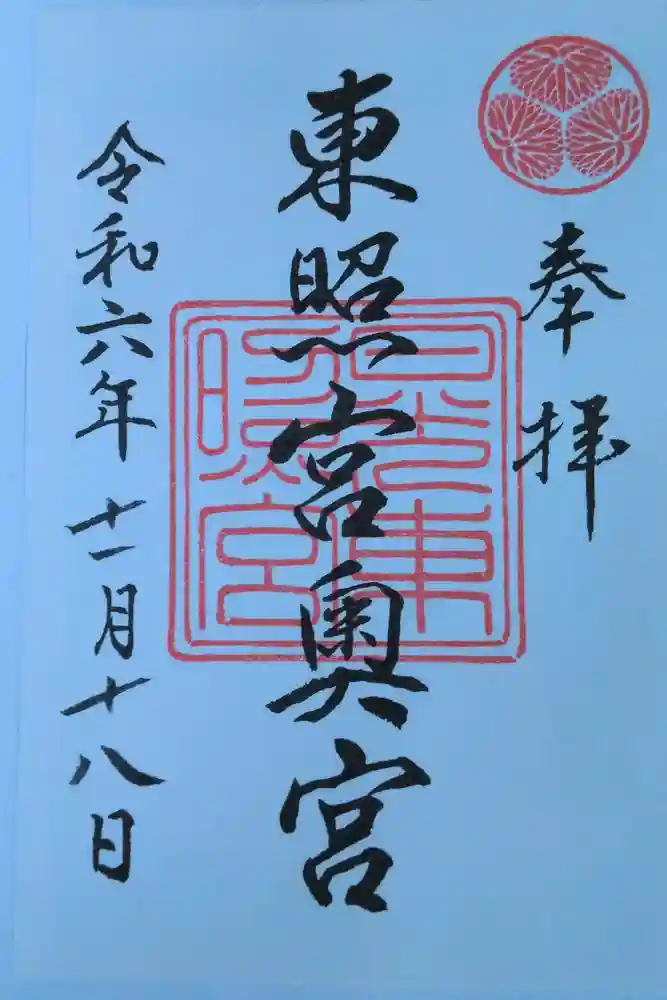 奉拝
東照宮奥宮
日光東照宮
令和六年十一月十八日